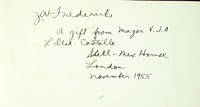 JW Fredericks
A gift from Major V.J.A
L.Del Costello
Shell-Mex House
London
November 1955